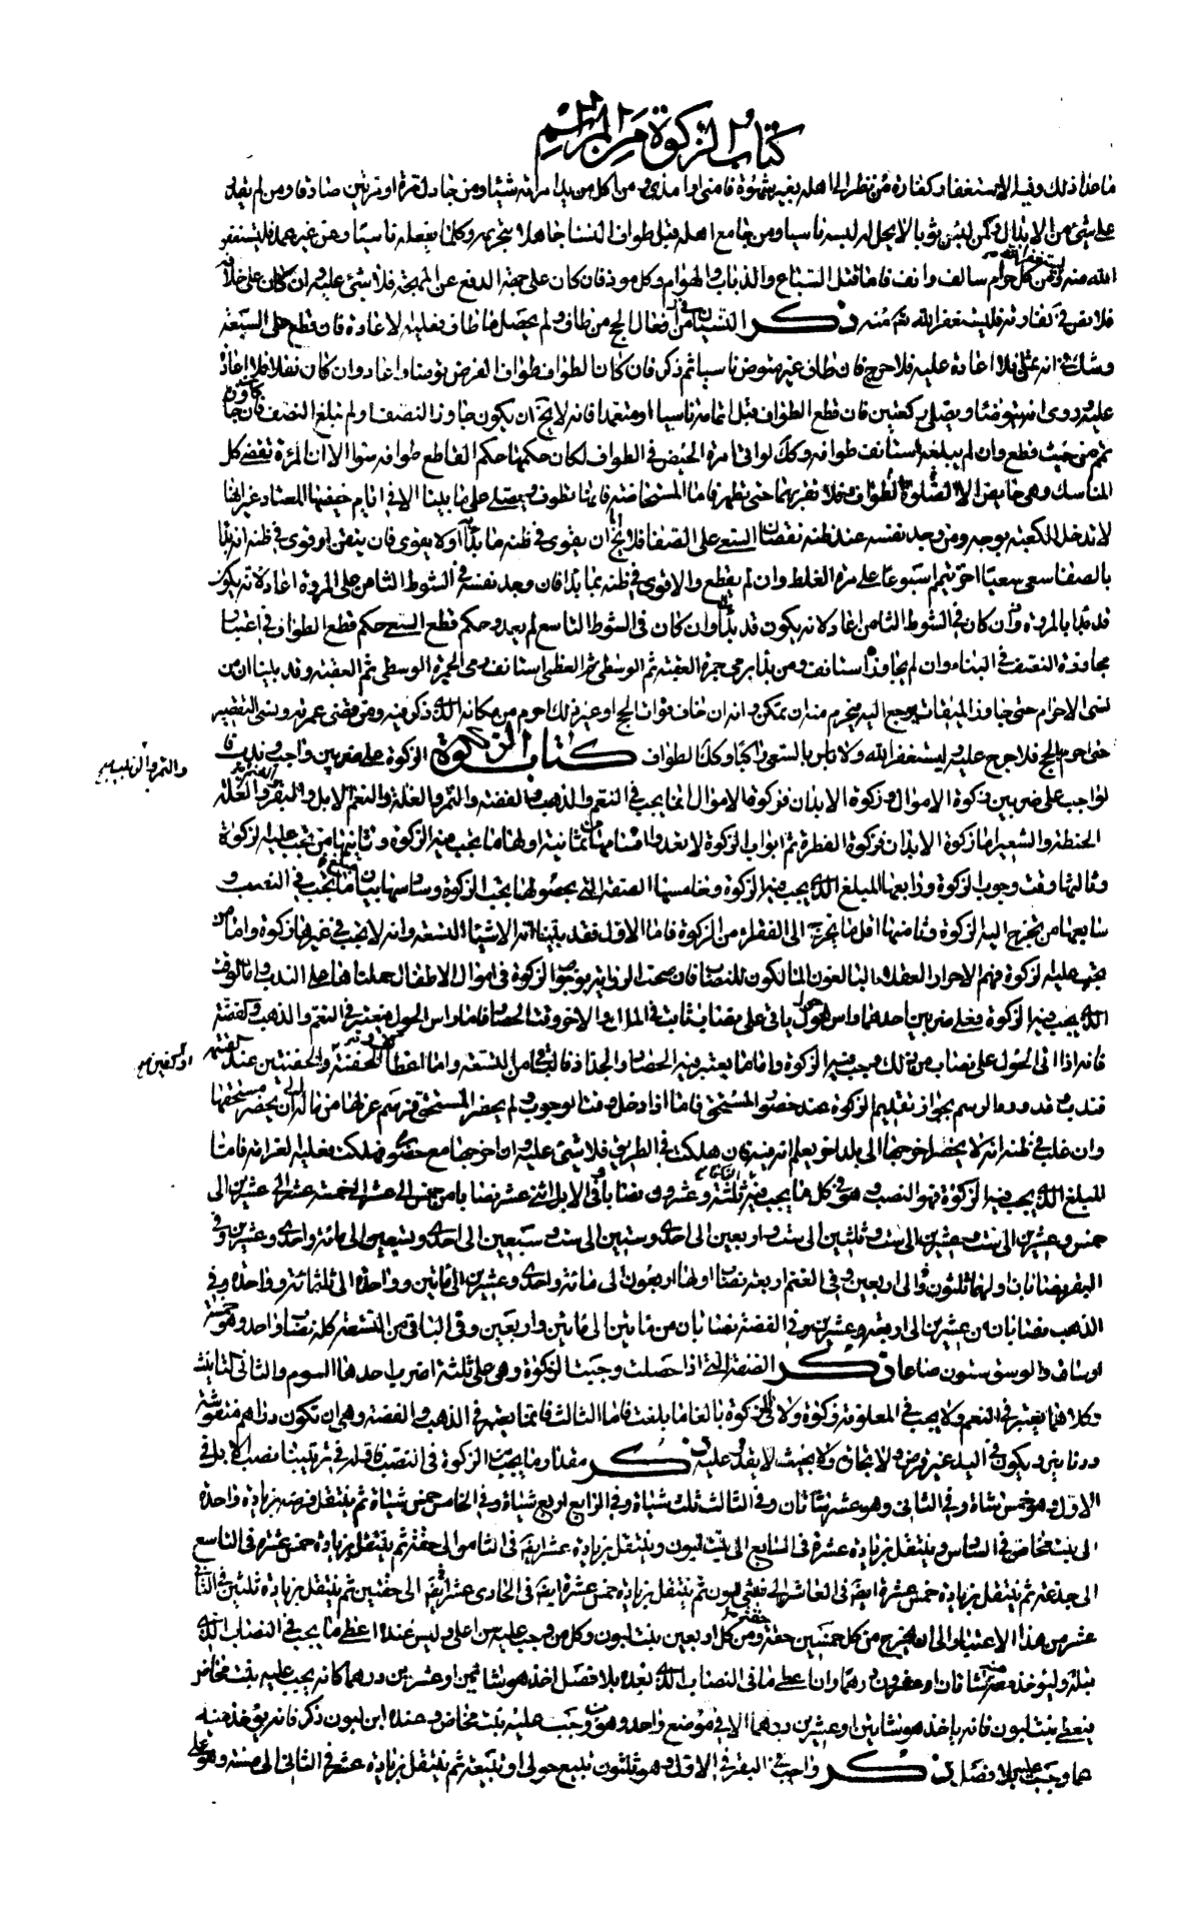 كتاب الزكوة من المراسم
ما عدا ذلك وفيه الاستغفار كفارة فمن نظر الى اهله بغير شهوة فامنى او امذى ومن اكل من يد امرأته شيئا ومن جادل مرة او مرتين صادقا ومن لم يقدر
على شئ من الابدال وكمن لبس ثوبا لا يحل له لبسه ناسيا ومن جامع اهله قبل طواف النساء جاهلا بتحريمه وكلما يفعله ناسيا وعن غير عمد فليستغفر
الله منه وعن كل حرام سالف وانف فاما قتل السباع والذباب والهوام وكل موذ فان كان على جهة الدفع عن المهجة فلا شئ عليه وان كان على خلافه
فلا نص في كفارته فليستغفر الله تم منه ذكر النسيان في افعال الحج من طاف ولم يحصل ما طاف فعليه الاعادة فان قطع على السبعة
وشك في انه ثمنى فلا اعادة عليه فلا حرج فان طاف غير متوض ناسيا ثم ذكر فان كان الطواف طواف الفرض توضا واعاد وان كان نفلا فلا اعادة
عليه وروى انه يتوضأ ويصلى ركعتين فان قطع الطواف قبل اتمامه ناسيا او متعمدا فانه لا يخ ان يكون جاوز النصف او لم يبلغ النصف فان جاوزه
تمم من حيث قطع وان لم يبلغه استانف طوافه وكك لو اتى امرة الحيض في الطواف لكان حكمها حكم القاطع طوافه سواء الا ان المرءة تقضى كل
المناسك وهى حايض الا الصلوة والطواف فلا تقربهما حتى تطهر فاما المستحاضة فانها تطوف وتصلى على ما بينا الا في ايام حيضها المعتاد غير انها
لا تدخل الكعبة بوجه ومن وجد نفسه عند ظنه نقصان السعى على الصفا فلا يخ ان يقوى في ظنه ما بدا به او لا يقوى فان تيقن او قوى في ظنه انه بدا
بالصفا سعى سعيا اخر يتم اسبوعا على مرة الغلط وان لم يقطع ولا قوى في ظنه بما بدا فان وجد نفسه في الشوط الثامن على المروة اعاد لانه يكون
قد بدا بالمروة وان كان في الشوط الثامن اعاد لانه يكون قد بدا وان كان في الشوط التاسع لم يعد وحكم قطع السعى حكم قطع الطواف في اعتبار
مجاوزة النصف في البناء وان لم يجاوز استانف ومن بدا برمى جمرة العقبة ثم الوسطى ثم العظمى استانف رمى الجمرة الوسطى ثم العقبة وقد بينا ان من
نسى الاحرام حتى جاوز الميقات يرجع اليه فيحرم منه ان تمكن وانه ان خاف فوات الحج او غير ذلك احرم من مكانه الذى ذكر فيه ومن قضى عمرته ونسى التقصير
حتى احرم للحج فلا حرج عليه وليستغفر الله ولا باس بالسعى راكبا وكك الطواف كتاب الزكوة الزكوة على ضربين واجب وندب فا
لواجب على ضربين زكوة الاموال وزكوة الابدان فزكوة الاموال انما يجب في النعم والذهب والفضة والتمر والغلة والنعم الابل والبقر والغنم والغلة
الحنطة والشعير اما زكوة الابدان فزكوة الفطرة ثم ابواب الزكوة لا تعدو اقسامها ثمانية اولها ما يجب فيه الزكوة وثانيها من تجب عليه الزكوة
وثالثها وقت وجوب الزكوة ورابعها المبلغ الذى يجب فيه الزكوة وخامسها الصفة التى بحصولها تجب الزكوة وسادسها بيان مبلغ ما تجب في النصب و
سابعها من تخرج اليه الزكوة وثامنها اقل ما يخرج الى الفقراء من الزكوة فاما الاول فقد بينا انه الاشياء التسعة وانه لا يجب في غيرها زكوة واما من
يجب عليه الزكوة فهم الاحرار العقلاء البالغون المالكون للنصاب فان صحت الرواية بوجوب الزكوة في اموال الاطفال حملناها على الندب واما الوقت
الذى يجب فيه الزكوة فعلى ضربين احدهما راس حول ياتى على نصاب ثابت في الملك والاخر وقت الحصاد فاما راس الحول فيعتبر في النعم والذهب والفضة
فانه اذا اتى الحول على نصاب من ذلك وجب فيه الزكوة واما ما يعتبر فيه الحصاد والجداد فالباقى من التسعة واما اعطاء الحفنة والحفنتين عند القسمة
فندب وقد ورد الرسم بجواز تقديم الزكوة عند حضور المستحق فاما اذا دخل وقت الوجوب ولم يحضر المستحق فرسم عزلها من ماله الى ان يحضر مستحقها
وان غلب في ظنه انه لا يحضر اخرجها الى بلد اخر يعلم انه فيه فان هلكت في الطريق فلا شئ عليه وان اخرجها مع حضوره فهلكت فعليه الغرامة فاما
المبلغ الذى يجب فيه الزكوة فهو النصب وهو في كل ما يجب فيه ثلثة وعشرون نصابا في الابل اثنى عشر نصابا من خمس الى عشر الى خمسة عشر الى عشرين الى
خمس وعشرين الى ست وعشرين الى ست وثلثين الى ست واربعين الى احدى وستين الى ست وسبعين الى احدى وتسعين الى مائة واحدى وعشرين وفي
البقر نصابان اولهما ثلثون والى اربعين وفي الغنم اربعة نصب اولها اربعون الى مائة واحدى وعشرين الى مأتين وواحدة الى ثلثمائة وواحدة وفي
الذهب نصابان من عشرين الى اربعة وعشرين وفي الفضة نصابان من مأتين الى مأتين واربعين وفي الباقى من التسعة كله نصاب واحد وهو خمسة
اوساق والوسق ستون صاعا ذكر الصفة التى اذا حصلت وجبت الزكوة وهى على ثلثة اضرب احدها السوم والثانى التانيث
وكلاهما يعتبر في النعم ولا يجب في المعلوفة زكوة ولا في الذكورة بالغا ما بلغت فاما الثالث فانما يعتبر في الذهب والفضة وهى ان تكون دراهم منقوشة
ودنانير ويكون في اليد غير قرض ولا بحاق ولا بحيث لا يقدر عليه ذكر مقدار ما يجب من الزكوة في النصب قد قيل في ترتيبنا نصب الابل في
الاول وهو خمس شاة وفي الثانى وهو عشر شاتان وفي الثالث ثلث شياة وفي الرابع اربع شياة وفي الخامس خمس شياة ثم ينتقل فرضه بزيادة واحدة
الى بنت مخاض في السادس وينتقل بزيادة عشرة في السابع الى بنت لبون وينتقل بزيادة عشر ايضا في الثامن الى حقة ثم ينتقل بزيادة خمس عشرة في التاسع
الى جذعة ثم ينتقل بزيادة خمس عشرة ايضا في العاشر الى بنتى لبون ثم ينتقل بزيادة خمس عشرة ايضا في الحادى عشر ايضا الى حقتين ثم ينتقل بزيادة ثلثين في الثانى
عشر من هذا الاعتبار الى ان يخرج من كل خمسين حقة ومن كل اربعين بنت لبون وكل من وجب عليه سن اعلى وليس عنده اعطى ما يجب في النصاب الذى
يليه وليؤخذ معه شاتان او عشرون درهما وان اعطى ما في النصاب الذى بعده بلا فصل اخذ هو شاتين او عشرين درهما كانه يجب عليه بنت مخاض
فيعطى بنت لبون فانه ياخذ هو شاتين او عشرين درهما الا في موضع واحد وهو من وجب عليه بنت مخاض وعنده ابن لبون ذكر فانه يؤخذ منه
عما وجب عليه بلا فصل ذكر واجب في البقر في الاول وهو ثلثون تبيع حولى او تبيعة ثم ينتقل بزيادة عشر في الثانى الى مسنة وهو على